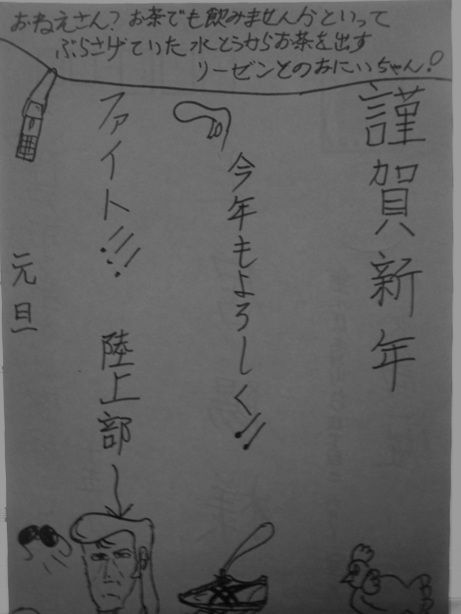 おねえさん?お茶でも飲みませんかといって
ぶらさげていた水とうからお茶を出す
リーゼントのおにいちゃん!
謹賀新年
今年もよろしく!!
ファイト!!! 陸上部〜
元旦